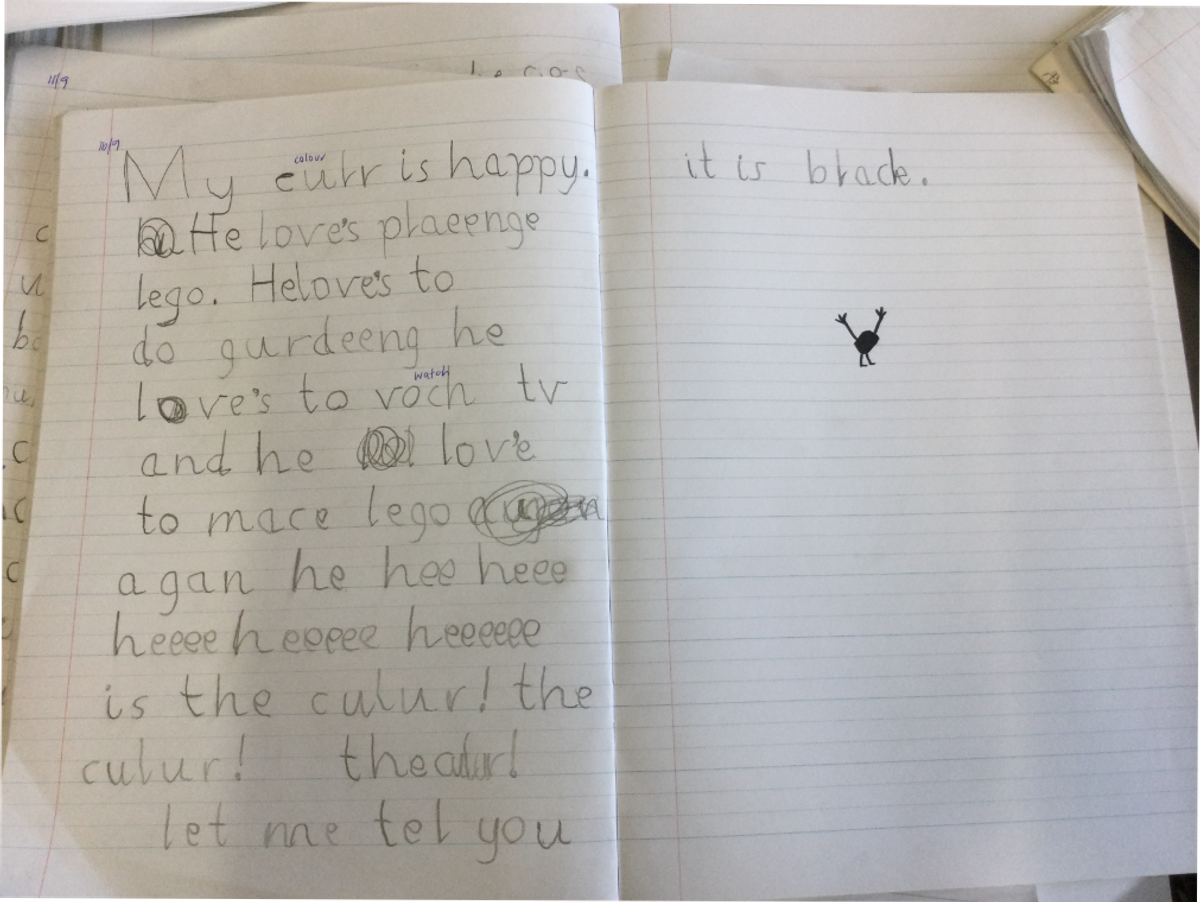 11/9
10/9
colour
My culr is happy.
He love's plaeenge
lego. Helove's to
do gurdeeng he
watch
love's to voch tv
and he lov'e
to mace lego
agan he hee heee
heeee heeeee heeeeee
is the culur! the
culur! the
let me tel you
it is black.